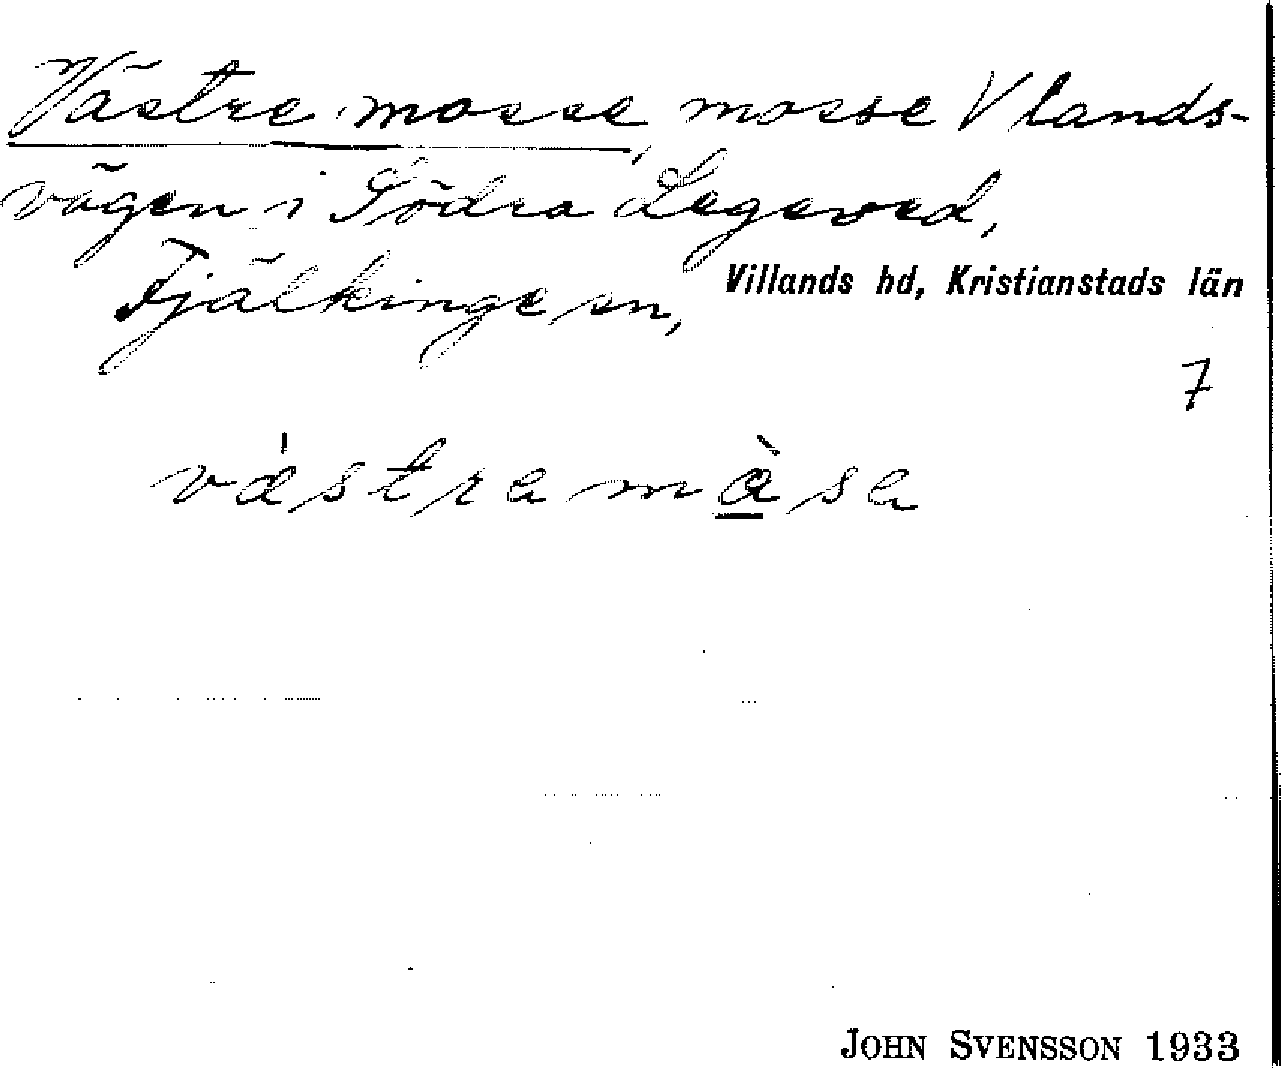 Västre mosse, mosse V lands-
vägen i Södra Legeved,
Fjälkinge sn,
Villands hd, Kristianstads län
7
västramåsa
JOHN SVENSSON 1933